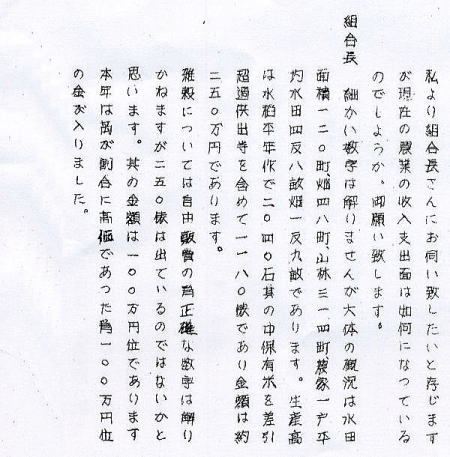 私より組合長さんにお伺い致したいと存じます
が現在の農業の収入支出面は如何になつている
のでしようか。御願い致します。
組合長　細かい数字は解りませんが大体の概況は水田
面積一二〇町、畑四八町、山林三一四町、農家一戸平
均水田四反八畝畑一反九畝であります。生産高
は水稲平年作で二〇四〇石其の中保有米を差引
超過供出等を含めて一一八〇俵であり金額は約
二五〇万円であります。
雑穀については自由販賣の為正確な数字は解り
かねますが二五〇俵は出ているのではないかと
思います。其の金額は一〇〇万円位であります
本年は 割合に高価であつた為一〇〇万円位
の金が入りました。